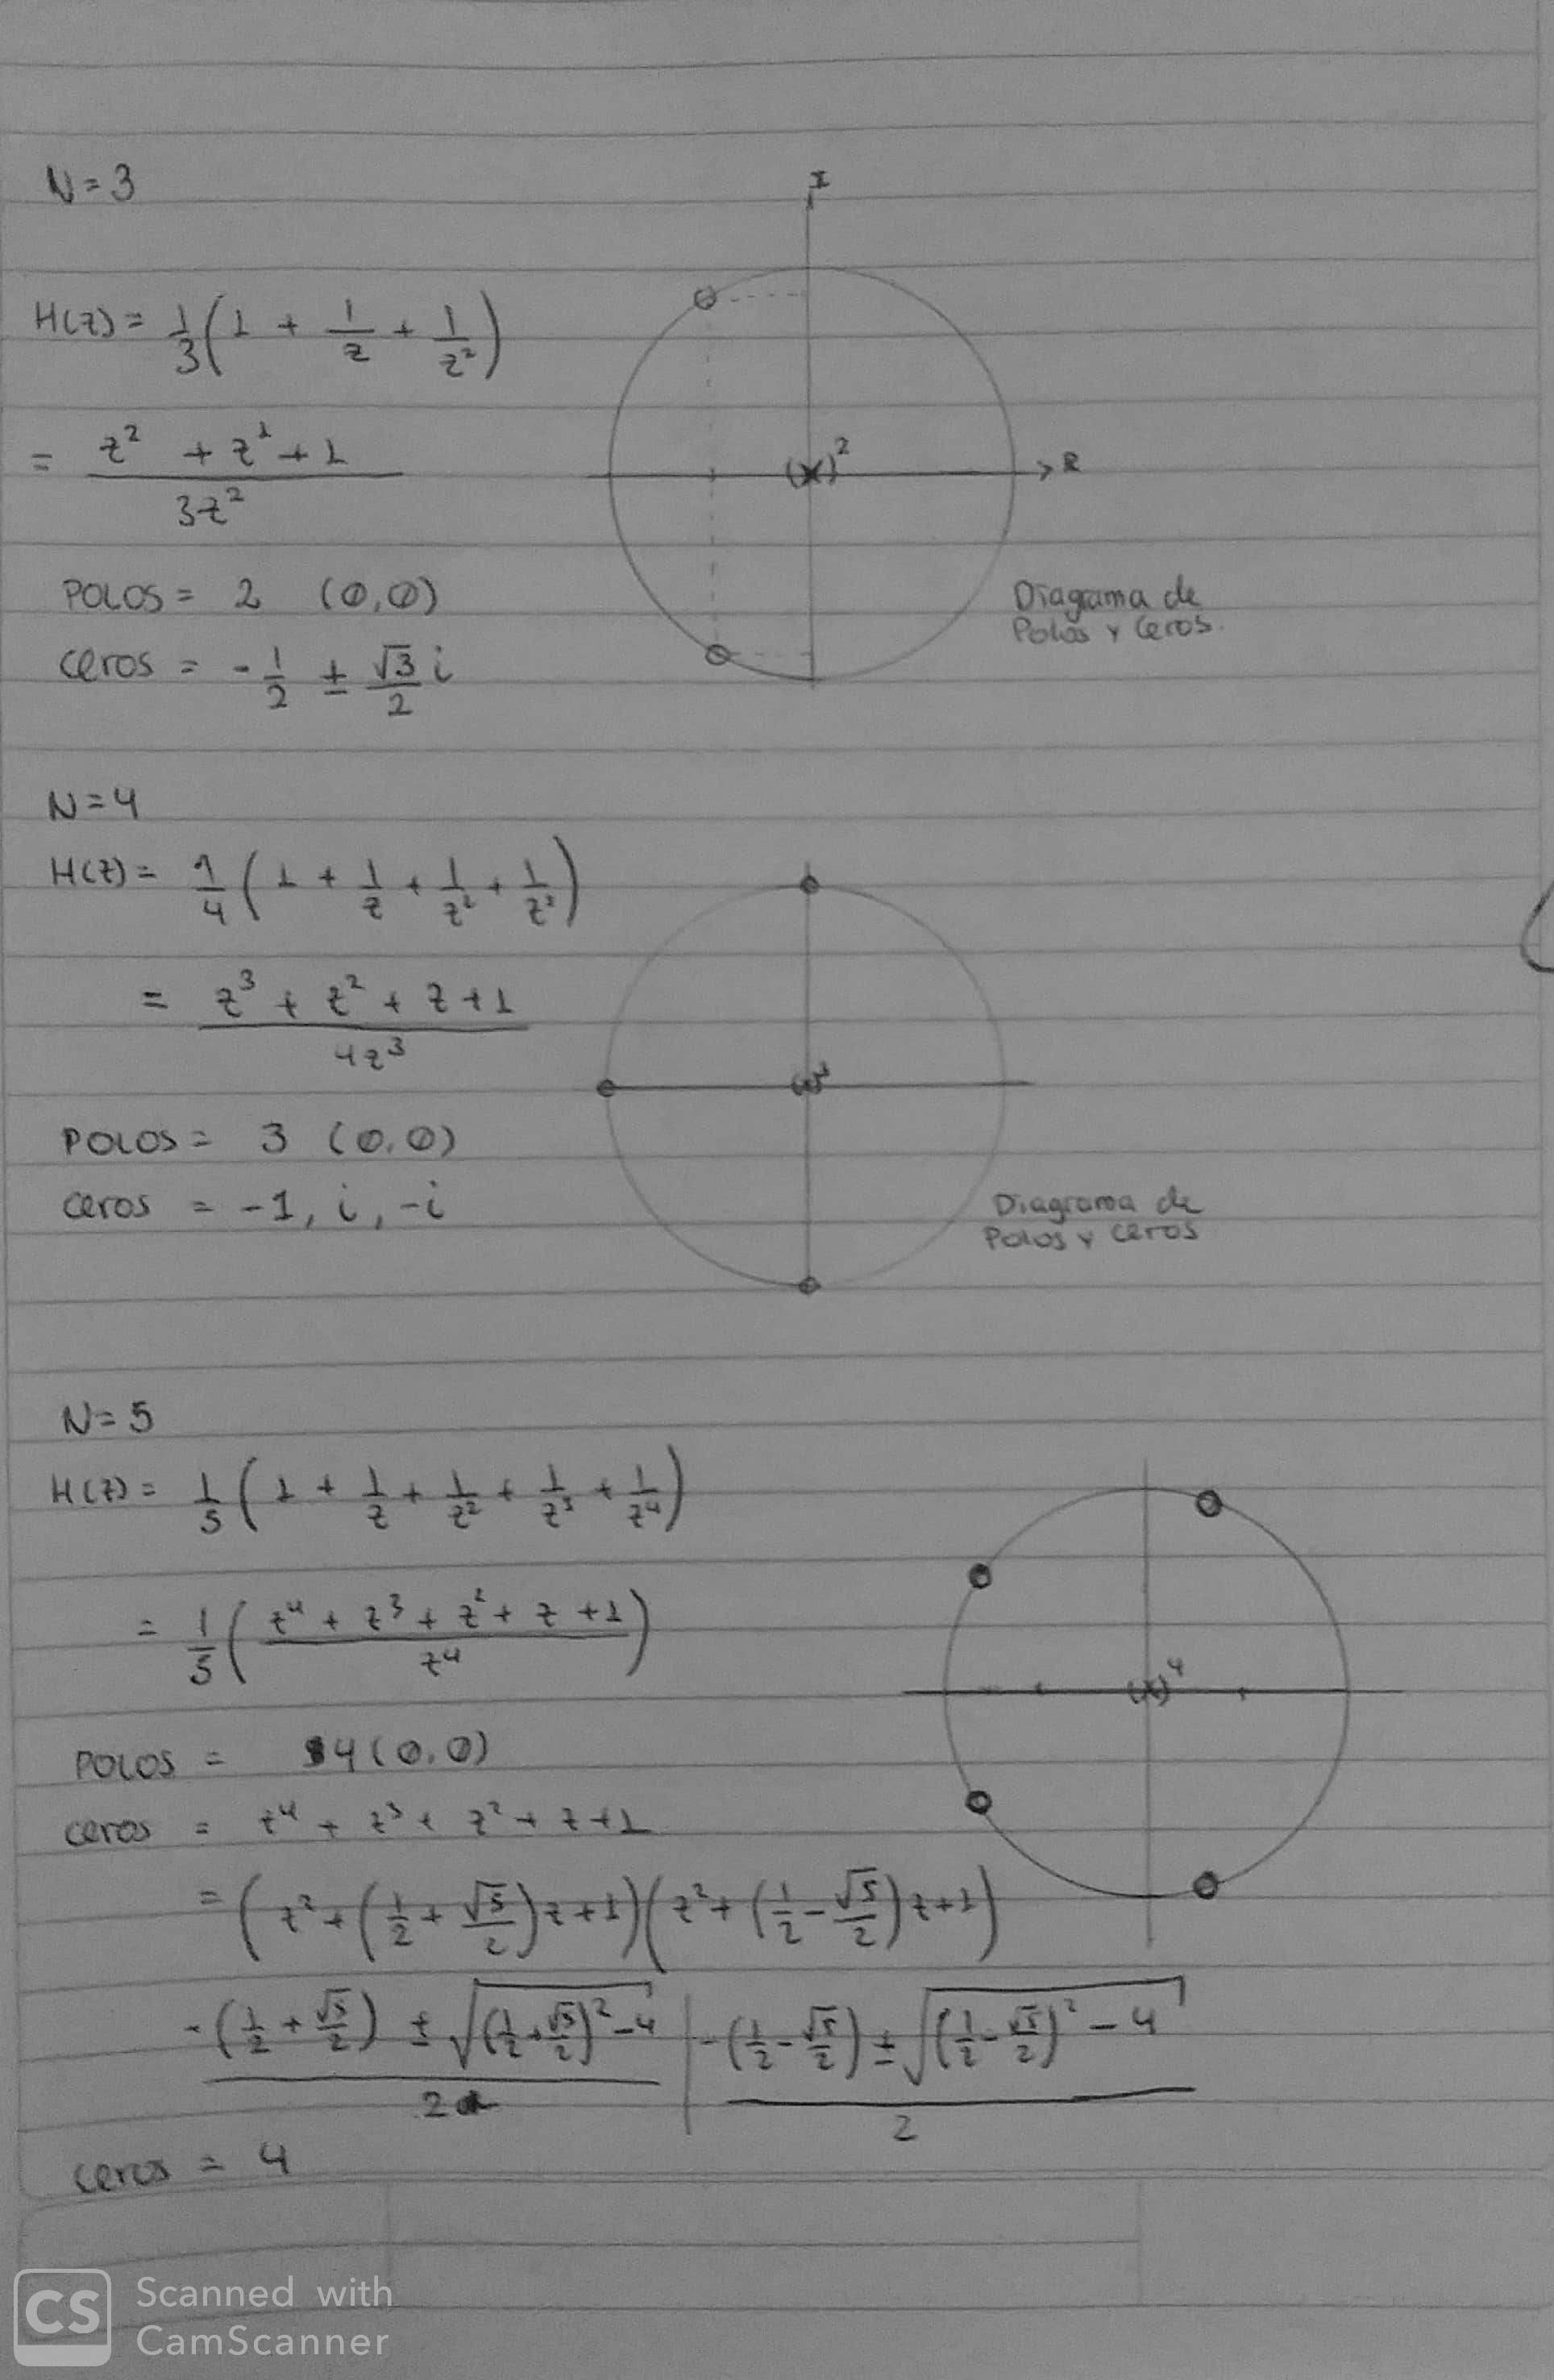 N=3
I
H(z) = 1/3 (1 + 1/z + 1/z²)
= (z² + z¹ + 1) / 3z²
(x)²
R
POLOS = 2 (0,0)
Diagrama de
Polos y Ceros.
ceros = -1/2 ± √3/2 i
N=4
H(z) = 1/4 (1 + 1/z + 1/z² + 1/z³)
= (z³ + z² + z + 1) / 4z³
(x)³
POLOS = 3 (0,0)
ceros = -1, i, -i
Diagrama de
Polos y ceros
N=5
H(z) = 1/5 (1 + 1/z + 1/z² + 1/z³ + 1/z⁴)
= 1/5 ((z⁴ + z³ + z² + z + 1) / z⁴)
(x)⁴
POLOS = 4 (0,0)
ceros = z⁴ + z³ + z² + z + 1
= (z² + (1/2 + √5/2)z + 1)(z² + (1/2 - √5/2)z + 1)
(-(1/2 + √5/2) ± √((1/2 + √5/2)² - 4)) / 2 | (-(1/2 - √5/2) ± √((1/2 - √5/2)² - 4)) / 2
ceros = 4
CS
Scanned with
CamScanner